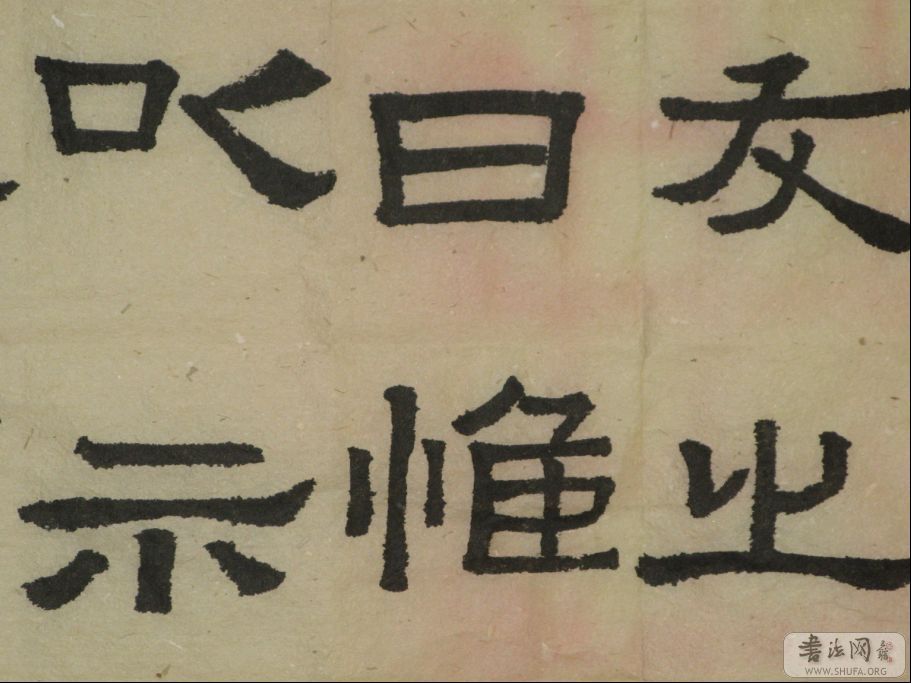 友之
曰惟
以示
書法网
WWW.SHUFA.ORG